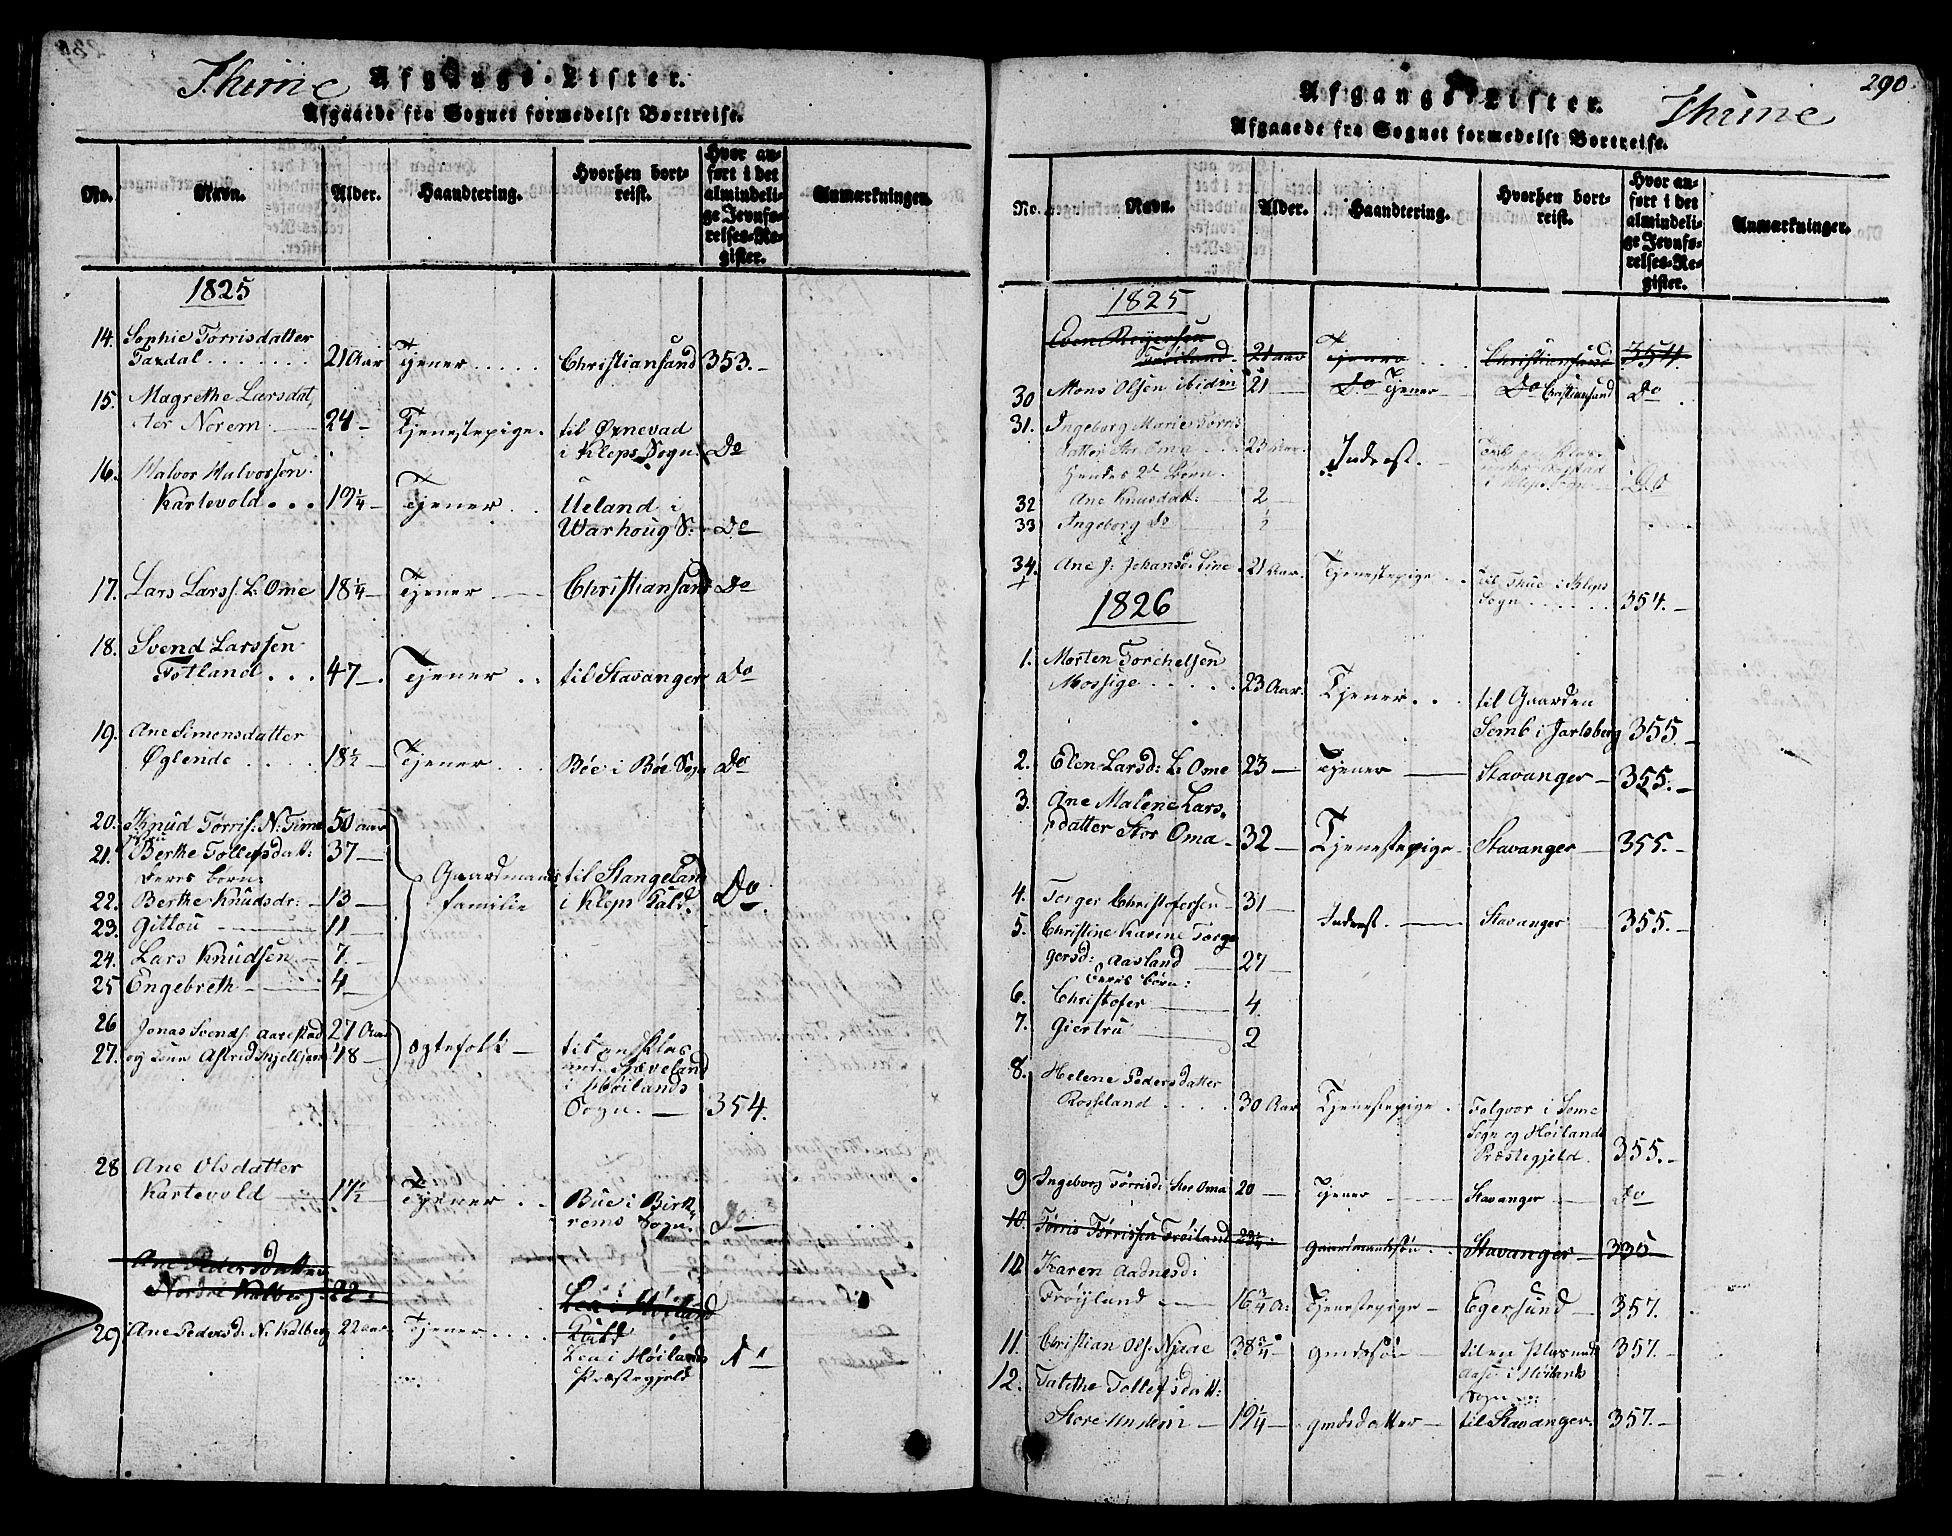 Thime
Afgangs-Lister.
Afgaaede fra Sognet formedelst Bortreise.
No. Navn. Alder. Haandtering. Hvorhen bortreist. Hvor anført i det almindelige Jevnførelses-Register. Anmærkninger.
1825
14. Sophie Torrisdatter
Taxdal . . . 21 Aar Tjener . . . Christiansand 353.
15. Magrethe Larsdat,
ter Norem 24 Tjenestepige. til Ørnevad
i Kleps Sogn. Do
16. Halvor Halvorssen
Kartevold . . . 19 1/4 Tjener . . Ueland i
Warhoug S: Do
17. Lars Larss. L: Ome 18 1/4 Tjener Christiansand Do
18. Svend Larssen
Fotland . . . 47 Tjener . . til Stavanger Do
19. Ane Simensdatter
Øglende . . . 18 1/2 Tjener . . . Bøe i Bøe Sogn Do
20. Knud Torris: N: Time 50 aar
21. Berthe Tollefsdatt: 37
Deres børn:
22. Berthe Knudsdr: 13
23. Gitlou 11
24. Lars Knudsen 7
25 Engebreth 4
Gaardmands familie til Stangeland
i Kleps Gield. Do
26 Jonas Svends. Aarestad 27 Aar
27. og Kone Astrid 48 Ægtefolk til
i Høilands
Sogn. 354.
28 Ane Olsdatter
Kartevold 17 1/2 Tjener . . Bue i Birk,
rems Sogn. Do
Ane Pedersdatter
Nordre Kalberg 22
Lea i Høiland
29 Ane Pedersd: N. Kalberg 22 aar Tjener . . .
Lea i Høilands
Præstegjeld
290
Afgangs-Lister.
Thime
Afgaaede fra Sognet formedelst Bortreise.
No. Navn. Alder. Haandtering. Hvorhen bortreist. Hvor anført i det almindelige Jevnførelses-Register. Anmærkninger.
1825
21 aar Tjener Christiansand 354.
30 Mons Olsen ibidm 21 Do Tjener Do Christiansand Do
31. Ingeborg Marie Torris
datter Str Oma 23 Aar. Inderst.
Hendes 2de Børn.
Do
32 Ane Knudsdatt: 2
33 Ingeborg Do
34. Ane J: Johansd: Line 21 Aar. Tjenestepige . . til Thue i Kleps
Sogn . . . 354.
1826
1. Morten Torchelsen
Mossige . . . 23 Aar. Tjener . . til Gaarden
Semb i Jarlsberg 355.
2. Elen Larsd: L: Ome 23 Tjener Stavanger 355.
3. Ane Malene Lars,
datter Stor Oma 32 Tjenestepige Stavanger 355.
4. Torger Christofersen 31
Inderst. Stavanger 355.
5. Christine Karine Torge
gersd: Aasland 27
Deres børn:
6. Christofer 4
7. Giertru 2
8. Helene Pedersdatter
Rosseland . . . 30 Aar Tjenestepige. Folgvor i Some
Sogn og Høilands
Præstegjeld. 355.
9 Ingeborg Torrisd: Stor Oma 20 Tjener Stavanger Do
10. Torris Torrissen Frøiland Gaardmandssøn . . Stavanger 335
10 Karen Aadnesd:
Frøyland 16 3/4 A: Tjenestepige Egersund 357.
11. Christian Ols. Njaae 38 3/4 gmdssøn til en Pladsund
i Høilands
Sogn 357.
12. Talethe Tollefsdatt:
Store Undem 19 1/4 gmdsdatter til Stavanger. 357.